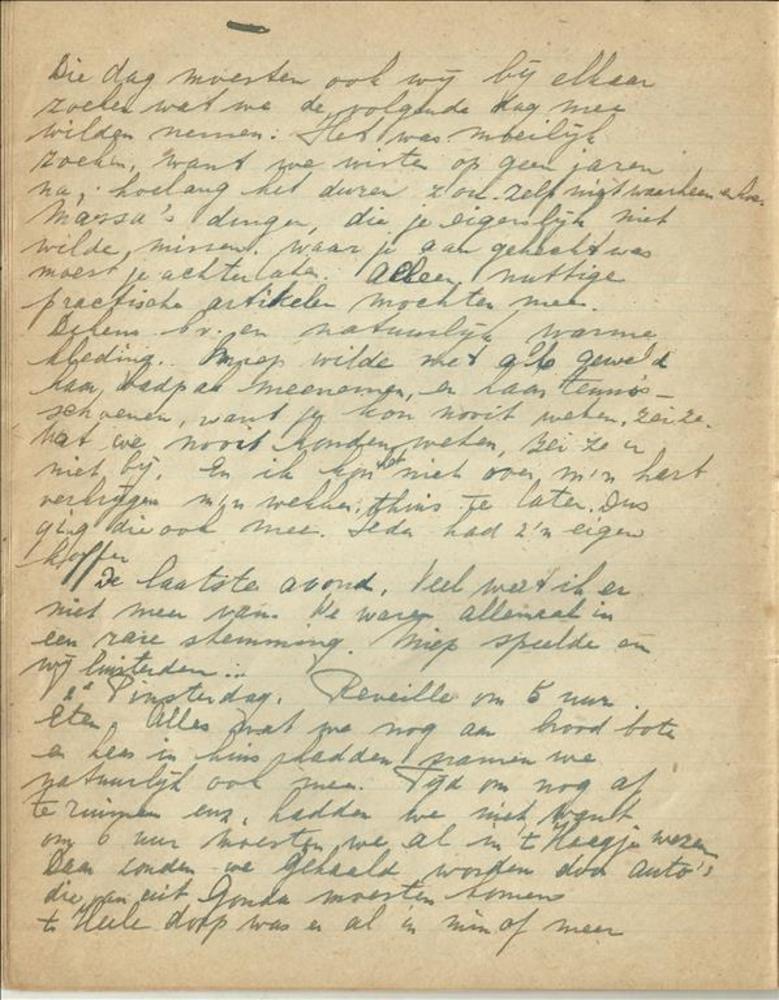 Die dag moesten ook wij bij elkaar
zoeken wat we de volgende dag mee
wilden nemen. Het was moeilijk
zoeken, want we wisten op geen jaren
na, hoelang het duren zou. zelfs niet waarheen en hoe.
Massa's dingen, die je eigenlijk niet
wilde missen, waar je aan gehecht was
moest je achterlaten. Alleen nuttige
practische artikelen mochten mee.
Dekens bv. en natuurlijk warme
kleding. Miep wilde met alle geweld
haar badpak meenemen, en haar tennis-
schoenen, want je kon nooit weten, zei ze.
Wat we nooit konden weten, zei ze er
niet bij. En ik kon het niet over m'n hart
verkrijgen m'n wekker thuis te laten. Dus
ging die ook mee. Ieder had z'n eigen
koffer
De laatste avond. Veel weet ik er
niet meer van. We waren allemaal in
een rare stemming. Miep speelde en
wij luisterden...
1e Pinksterdag. Reveille om 5 uur.
Eten. Alles wat we nog aan brood boter
en kaas in huis hadden namen we
natuurlijk ook mee. Tijd om nog af
te ruimen enz. hadden we niet, want
om 6 uur moesten we al in 't Haagje wezen
Daar zouden we gehaald worden door auto's
die van uit Gouda moesten komen
't Heele dorp was er al in min of meer